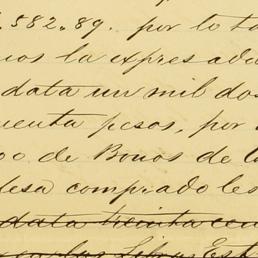 .582.89. por lo ta
nos la expresad
data un mil dos
uenta pesos, por
00 de Bonos de l
fesa comprado les
data treinta cen